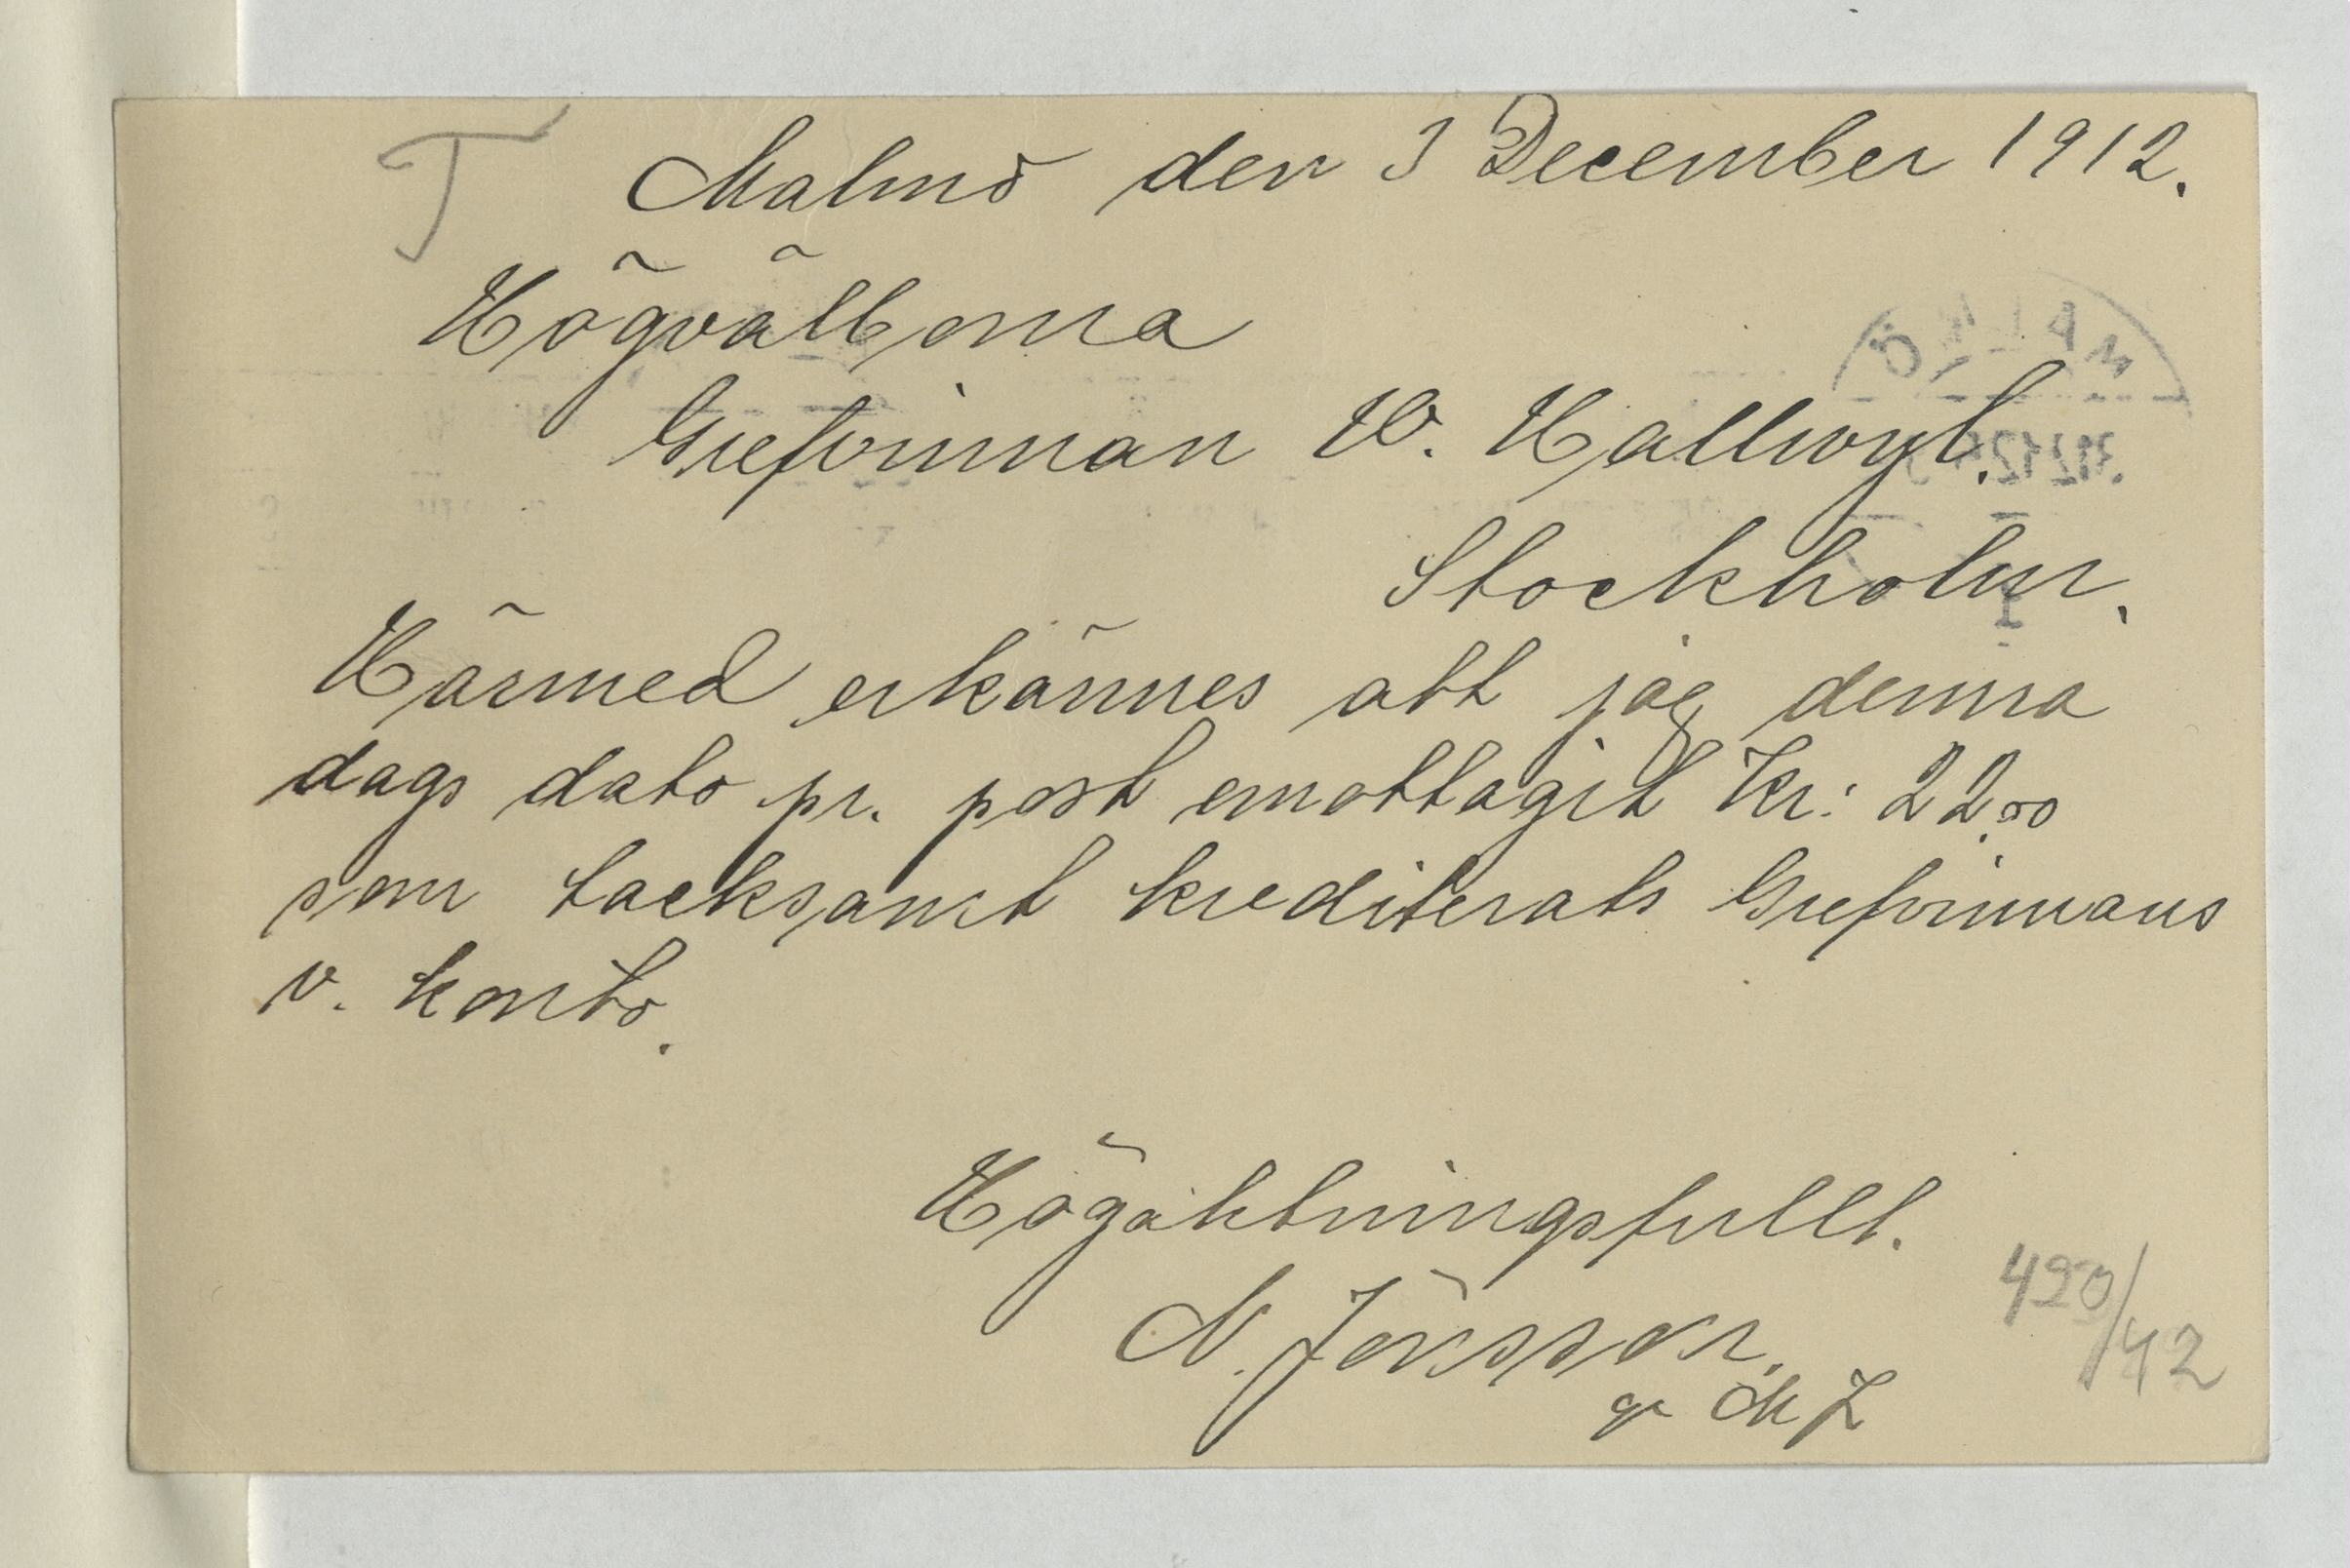 T
Malmö den 3 December 1912.
Högvälborna
Grefvinnan W. Hallwyl.
Stockholm.
Härmed erkännes att jag denna
dags dato pr. post emottagit Kr: 22.00
som tacksamt krediterats Grefvinnans
v. konto.
Högaktningsfullt.
N. Jönsson.
gm M J
420/42
MALMÖ